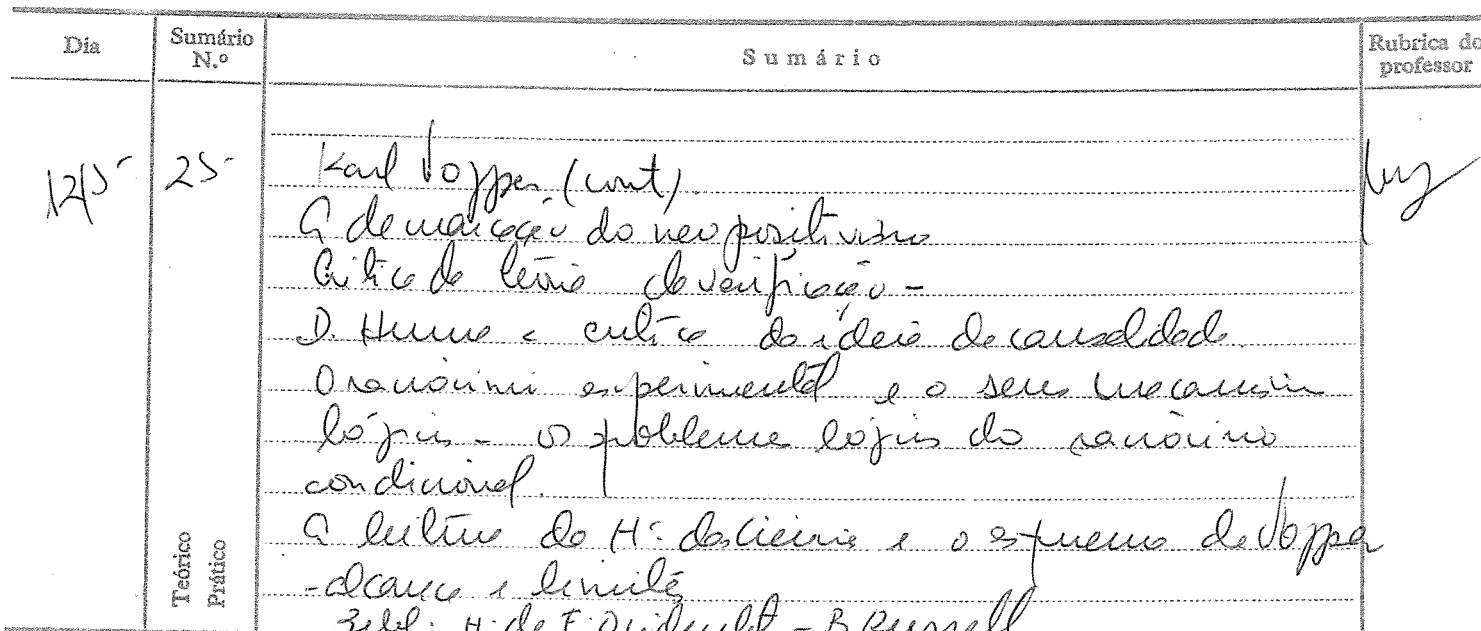 Dia
Sumário N.º
Sumário
Rubrica do professor
12/5
25
Karl Popper (cont).
A demarcação do neo positivismo
Crítica da teoria da verificação -
D. Hume e crítica da ideia de causalidade.
O raciocínio experimental e o seu mecanismo
lógico - os problemas lógicos do raciocínio
condicional.
A leitura da H.ª das Ciências e o esquema de Popper
- alcance e limites
Bibl. H.ª da F. Ocidental - B. Russell
Teórico
Prático